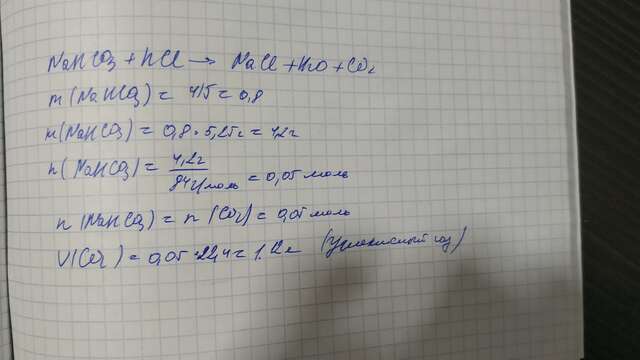 NaHCO₃ + HCl → NaCl + H₂O + CO₂
m(NaHCO₃) = 4/5 = 0,8
m(NaHCO₃) = 0,8 · 5,25г = 4,2г
n(NaHCO₃) = 4,2г / 84г/моль = 0,05 моль
n(NaHCO₃) = n(CO₂) = 0,05 моль
V(CO₂) = 0,05 · 22,4 = 1,12л (Углекислый газ)